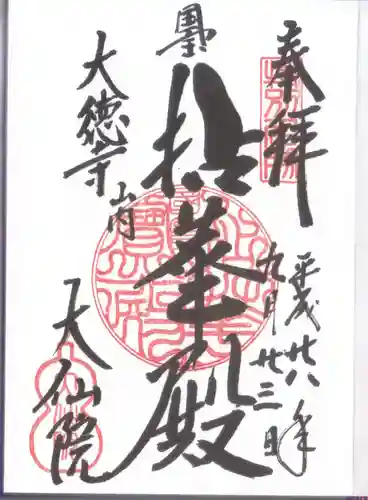 奉拝
平成廿八年
九月廿三日
拈華殿
大徳寺
山内
大仙院